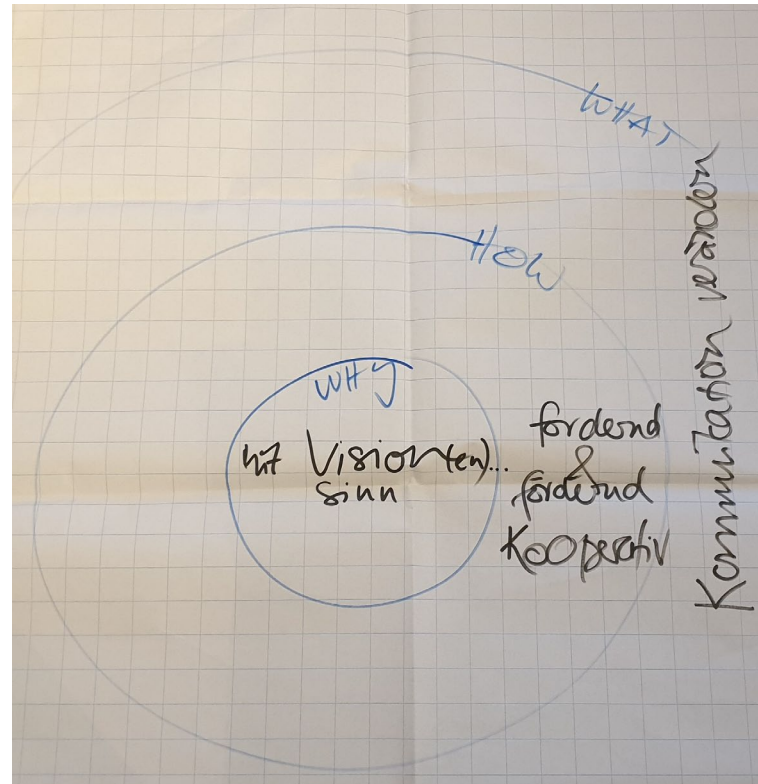 WHAT
HOW
WHY
mit Vision(en)...
Sinn
fordernd
&
fördernd
Kooperativ
Kommunikation verändern